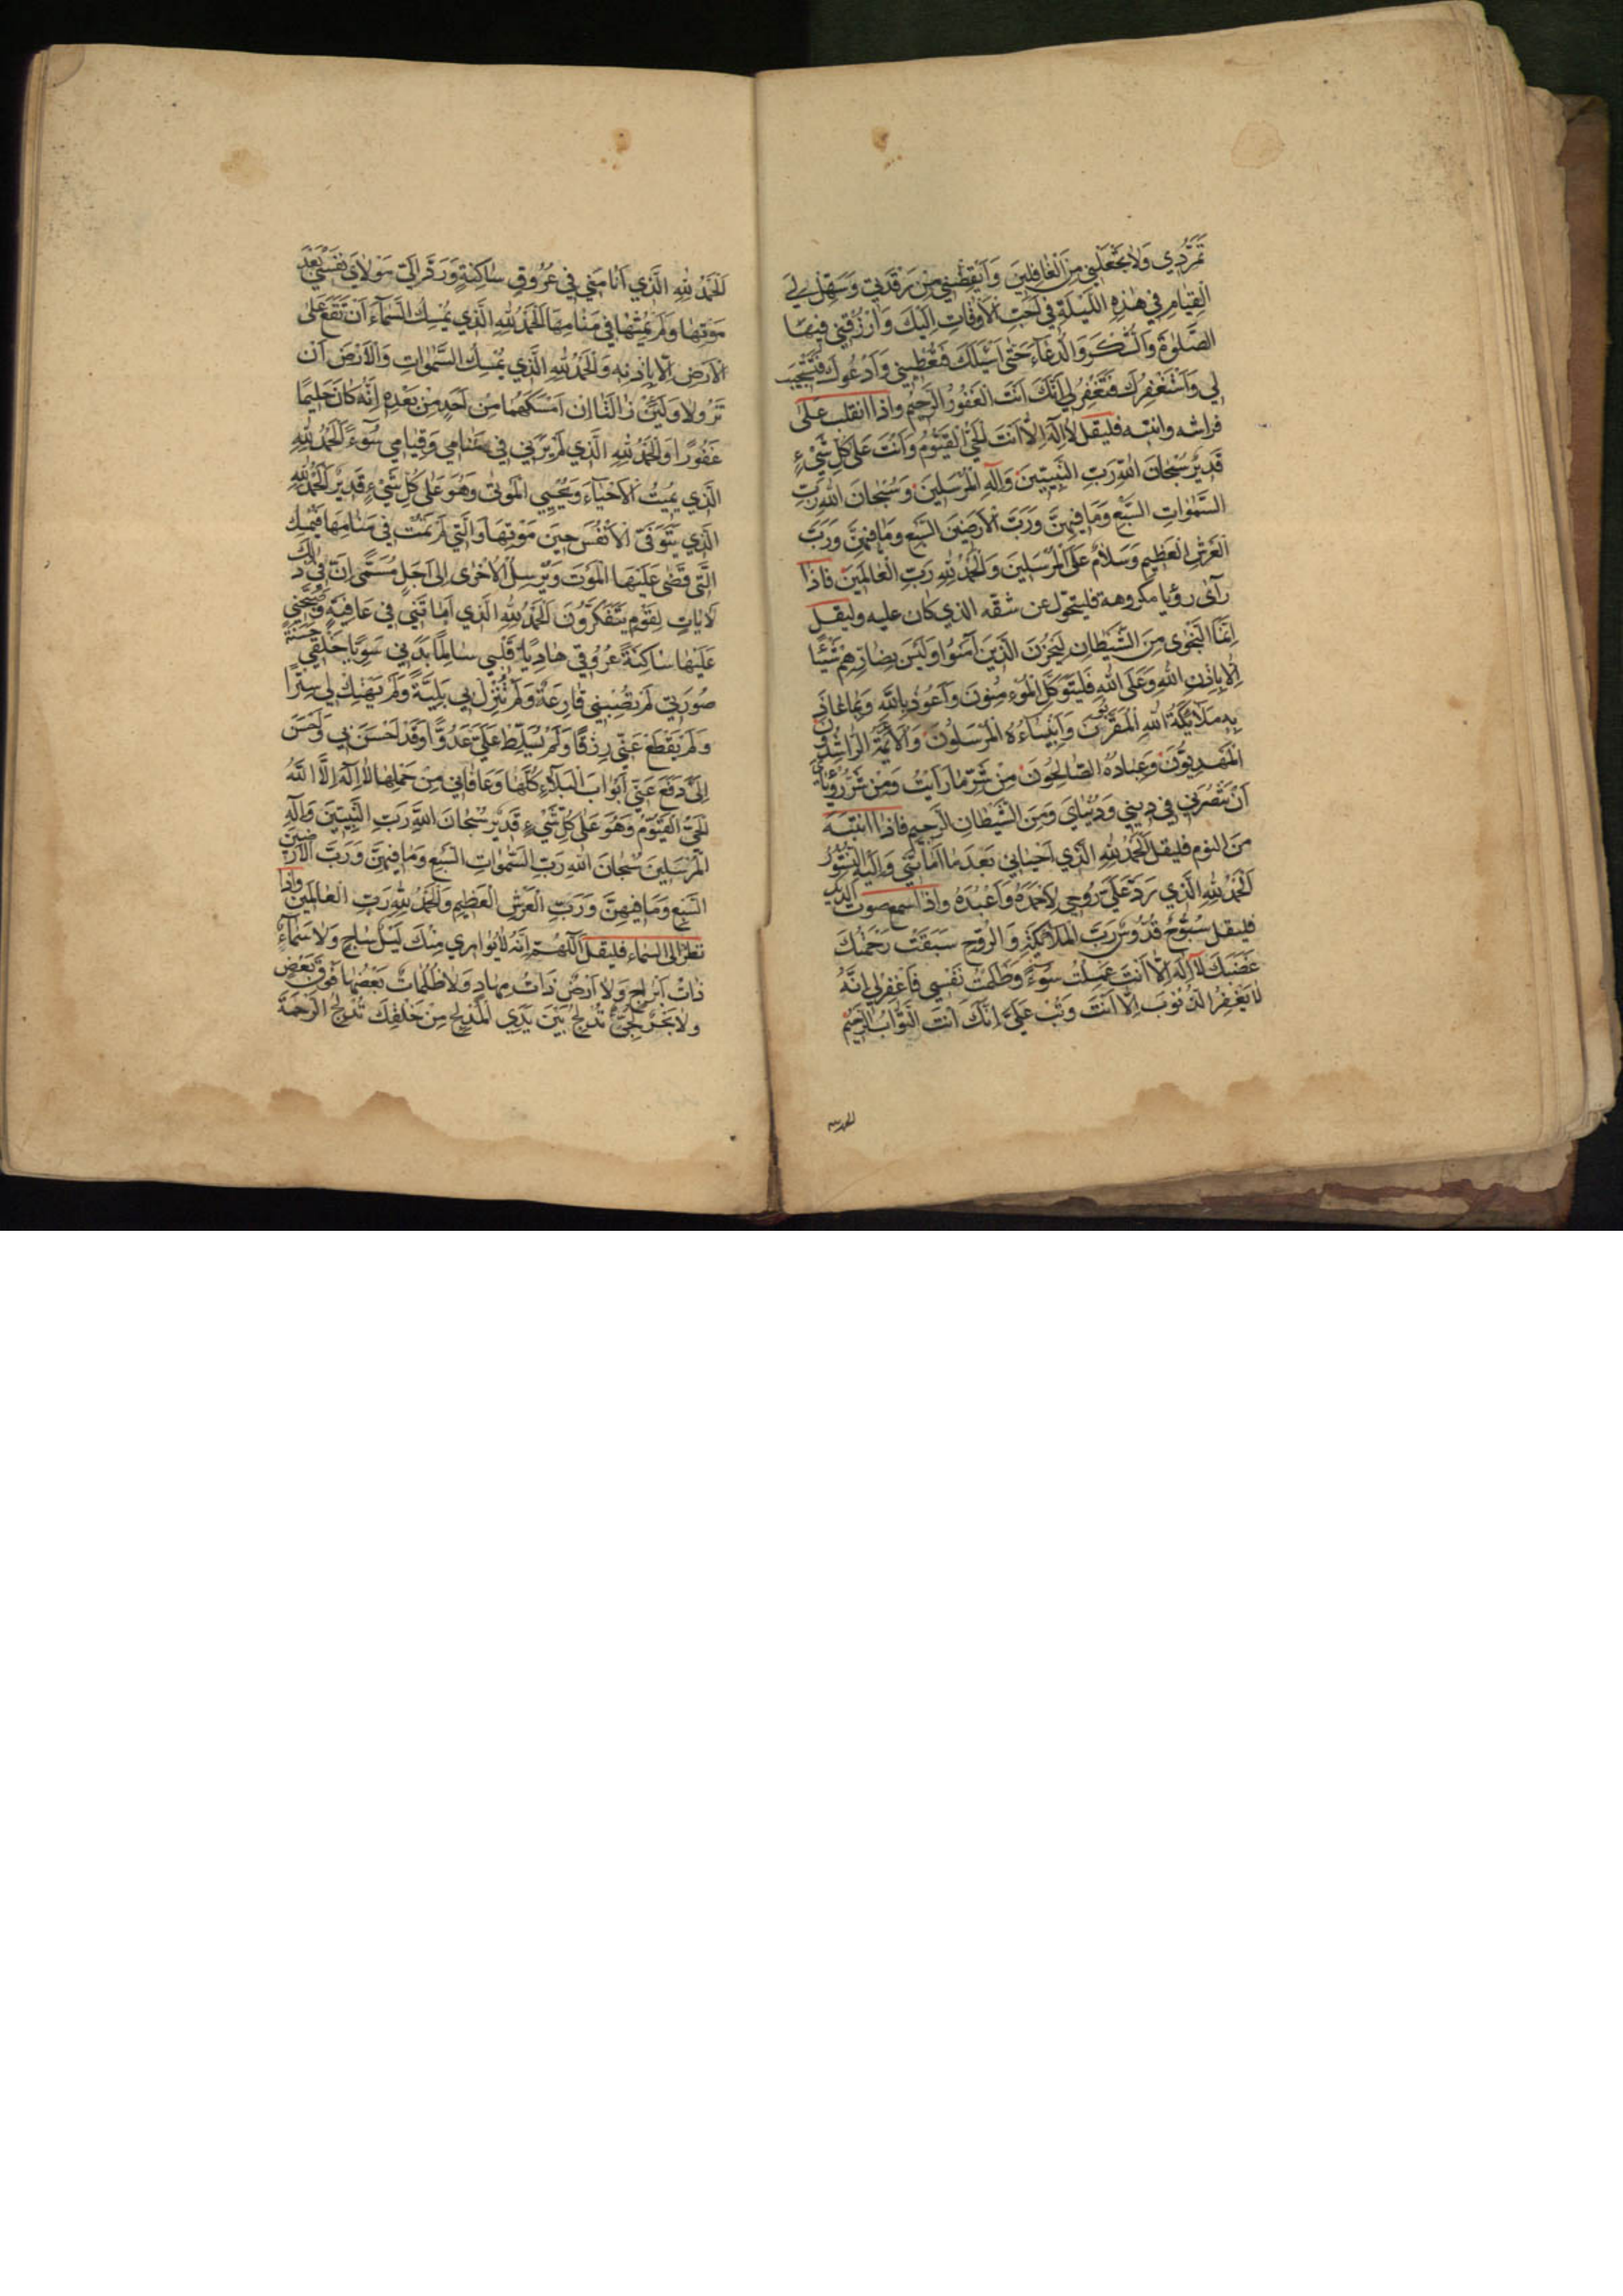 تَمَرُّدِي وَلَا تَجْعَلْنِي مِنَ الْغَافِلِينَ وَأَيْقِظْنِي مِنْ رَقْدَتِي وَسَهِّلْ لِي
الْقِيَامَ فِي هٰذِهِ اللَّيْلَةِ فِي أَحَبِّ الْأَوْقَاتِ إِلَيْكَ وَارْزُقْنِي فِيهَا
الصَّلٰوةَ وَالشُّكْرَ وَالدُّعَاءَ حَتَّى أَسْئَلَكَ فَتُعْطِيَنِي وَأَدْعُوكَ فَتَسْتَجِيبَ
لِي وَأَسْتَغْفِرُكَ فَتَغْفِرَ لِي إِنَّكَ أَنْتَ الْغَفُورُ الرَّحِيمُ واذا انقلب على
فراشه وانتبه فليقل لَا إِلٰهَ إِلَّا أَنْتَ الْحَيُّ الْقَيُّومُ وَأَنْتَ عَلَى كُلِّ شَيْءٍ
قَدِيرٌ سُبْحَانَ اللهِ رَبِّ النَّبِيِّينَ وَإِلٰهِ الْمُرْسَلِينَ وَسُبْحَانَ اللهِ رَبِّ
السَّمٰوَاتِ السَّبْعِ وَمَا فِيهِنَّ وَرَبِّ الْأَرَضِينَ السَّبْعِ وَمَا فِيهِنَّ وَرَبِّ
الْعَرْشِ الْعَظِيمِ وَسَلَامٌ عَلَى الْمُرْسَلِينَ وَالْحَمْدُ لِلّٰهِ رَبِّ الْعَالَمِينَ فاذا
رآى رؤيا مكروهة فليتحول عن شقه الذي كان عليه وليقل
إِنَّمَا النَّجْوَى مِنَ الشَّيْطَانِ لِيَحْزُنَ الَّذِينَ آمَنُوا وَلَيْسَ بِضَارِّهِمْ شَيْئًا
إِلَّا بِإِذْنِ اللهِ وَعَلَى اللهِ فَلْيَتَوَكَّلِ الْمُؤْمِنُونَ وَأَعُوذُ بِاللهِ وَبِمَا عَاذَتْ
بِهِ مَلَائِكَةُ اللهِ الْمُقَرَّبُونَ وَأَنْبِيَاءُهُ الْمُرْسَلُونَ وَالْأَئِمَّةُ الرَّاشِدُونَ
الْمَهْدِيُّونَ وَعِبَادُهُ الصَّالِحُونَ مِنْ شَرِّ مَا رَأَيْتُ وَمِنْ شَرِّ رُؤْيَايَ
أَنْ تَضُرَّنِي فِي دِينِي وَدُنْيَايَ وَمِنَ الشَّيْطَانِ الرَّجِيمِ فاذا انتبه
من النوم فليقل الْحَمْدُ لِلّٰهِ الَّذِي أَحْيَانِي بَعْدَ مَا أَمَاتَنِي وَإِلَيْهِ النُّشُورُ
الْحَمْدُ لِلّٰهِ الَّذِي رَدَّ عَلَيَّ رُوحِي لِأَحْمَدَهُ وَأَعْبُدَهُ واذا سمع صوت الديك
فليقل سُبُّوحٌ قُدُّوسٌ رَبُّ الْمَلَائِكَةِ وَالرُّوحِ سَبَقَتْ رَحْمَتُكَ
غَضَبَكَ لَا إِلٰهَ إِلَّا أَنْتَ عَمِلْتُ سُوءً وَظَلَمْتُ نَفْسِي فَاغْفِرْ لِي إِنَّهُ
لَا يَغْفِرُ الذُّنُوبَ إِلَّا أَنْتَ وَتُبْ عَلَيَّ إِنَّكَ أَنْتَ التَّوَّابُ الرَّحِيمُ
الحمد لله
الْحَمْدُ لِلّٰهِ الَّذِي أَنَامَنِي فِي عُرُوقٍ سَاكِنَةٍ وَرَدَّ إِلَيَّ مَوْلَايَ نَفْسِي بَعْدَ
مَوْتِهَا وَلَمْ يُمِتْهَا فِي مَنَامِهَا الْحَمْدُ لِلّٰهِ الَّذِي يُمْسِكُ السَّمَاءَ أَنْ تَقَعَ عَلَى
الْأَرْضِ إِلَّا بِإِذْنِهِ وَالْحَمْدُ لِلّٰهِ الَّذِي يُمْسِكُ السَّمٰوَاتِ وَالْأَرْضَ أَنْ
تَزُولَا وَلَئِنْ زَالَتَا إِنْ أَمْسَكَهُمَا مِنْ أَحَدٍ مِنْ بَعْدِهِ إِنَّهُ كَانَ حَلِيمًا
غَفُورًا وَالْحَمْدُ لِلّٰهِ الَّذِي لَمْ يُرِنِي فِي مَنَامِي وَقِيَامِي سُوءً الْحَمْدُ لِلّٰهِ
الَّذِي يُمِيتُ الْأَحْيَاءَ وَيُحْيِي الْمَوْتَى وَهُوَ عَلَى كُلِّ شَيْءٍ قَدِيرٌ الْحَمْدُ لِلّٰهِ
الَّذِي يَتَوَفَّى الْأَنْفُسَ حِينَ مَوْتِهَا وَالَّتِي لَمْ تَمُتْ فِي مَنَامِهَا فَيُمْسِكُ
الَّتِي قَضَى عَلَيْهَا الْمَوْتَ وَيُرْسِلُ الْأُخْرَى إِلَى أَجَلٍ مُسَمًّى إِنَّ فِي ذٰلِكَ
لَآيَاتٍ لِقَوْمٍ يَتَفَكَّرُونَ الْحَمْدُ لِلّٰهِ الَّذِي أَمَاتَنِي فِي عَافِيَةٍ وَصَبَّحَنِي
عَلَيْهَا سَاكِنَةً عُرُوقِي هَادِيًا قَلْبِي سَالِمًا بَدَنِي سَوِيًّا خَلْقِي حَسَنَةً
صُورَتِي لَمْ تُصِبْنِي قَارِعَةٌ وَلَمْ تُنْزِلْ بِي بَلِيَّةً وَلَمْ يَهْتِكْ لِي سِتْرًا
وَلَمْ يَقْطَعْ عَنِّي رِزْقًا وَلَمْ يُسَلِّطْ عَلَيَّ عَدُوًّا وَقَدْ أَحْسَنَ بِي وَأَحْسَنَ
إِلَيَّ وَدَفَعَ عَنِّي أَبْوَابَ الْبَلَاءِ كُلَّهَا وَعَافَانِي مِنْ جُمْلَتِهَا لَا إِلٰهَ إِلَّا اللهُ
الْحَيُّ الْقَيُّومُ وَهُوَ عَلَى كُلِّ شَيْءٍ قَدِيرٌ سُبْحَانَ اللهِ رَبِّ النَّبِيِّينَ وَإِلٰهِ
الْمُرْسَلِينَ سُبْحَانَ اللهِ رَبِّ السَّمٰوَاتِ السَّبْعِ وَمَا فِيهِنَّ وَرَبِّ الْأَرَضِينَ
السَّبْعِ وَمَا فِيهِنَّ وَرَبِّ الْعَرْشِ الْعَظِيمِ وَالْحَمْدُ لِلّٰهِ رَبِّ الْعَالَمِينَ واذا
نظر الى السماء فليقل اَللّٰهُمَّ إِنَّهُ لَا يُوَارِي مِنْكَ لَيْلٌ سَاجٍ وَلَا سَمَاءٌ
ذَاتُ أَبْرَاجٍ وَلَا أَرْضٌ ذَاتُ مِهَادٍ وَلَا ظُلُمَاتٌ بَعْضُهَا فَوْقَ بَعْضٍ
وَلَا بَحْرٌ لُجِّيٌّ تُدْلِجُ بَيْنَ يَدَيِ الْمُدْلِجِ مِنْ خَلْقِكَ تُدْلِجُ الرَّحْمَةَ